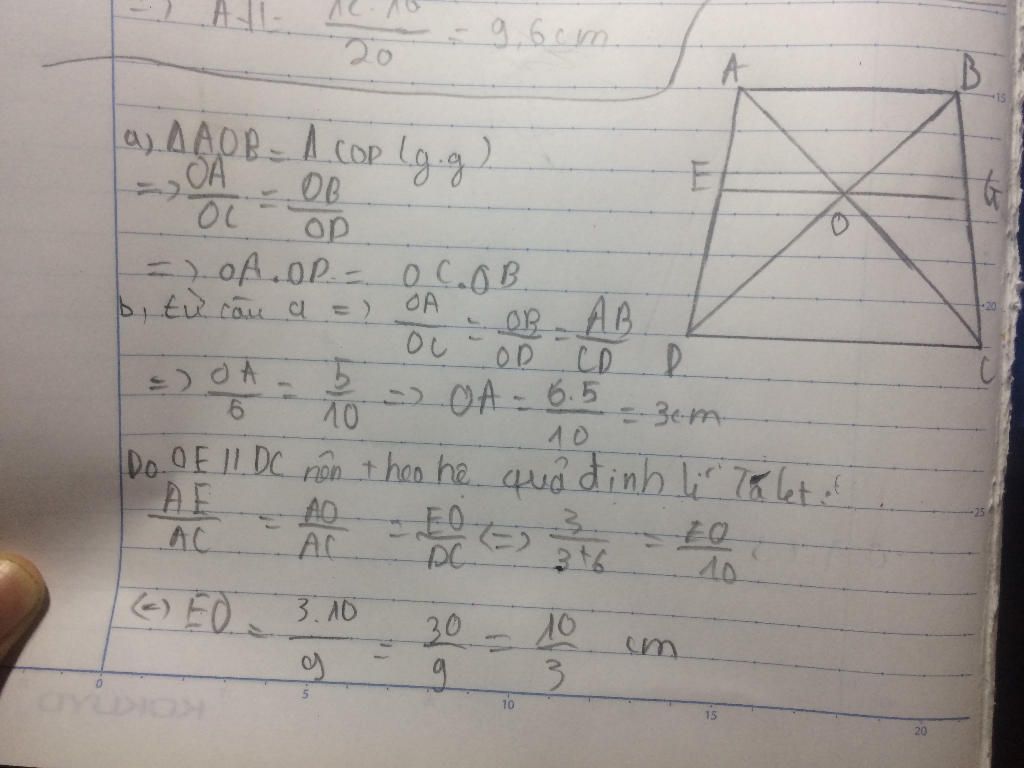 => AH = 12.16/20 = 9,6cm
A B
E G
O
D C
a) ΔAOB = Δ COD (g.g)
=> OA/OC = OB/OD
=> OA.OD = OC.OB
b, từ câu a => OA/OC = OB/OD = AB/CD
=> OA/6 = 5/10 => OA = 6.5/10 = 3cm
Do OE // DC nên theo hệ quả định lí Talet:
AE/AC = AO/AC = EO/DC <=> 3/3+6 = EO/10
<=> EO = 3.10/9 = 30/9 = 10/3 cm
0 5 10 15 20
15
20
25
KOKUYO